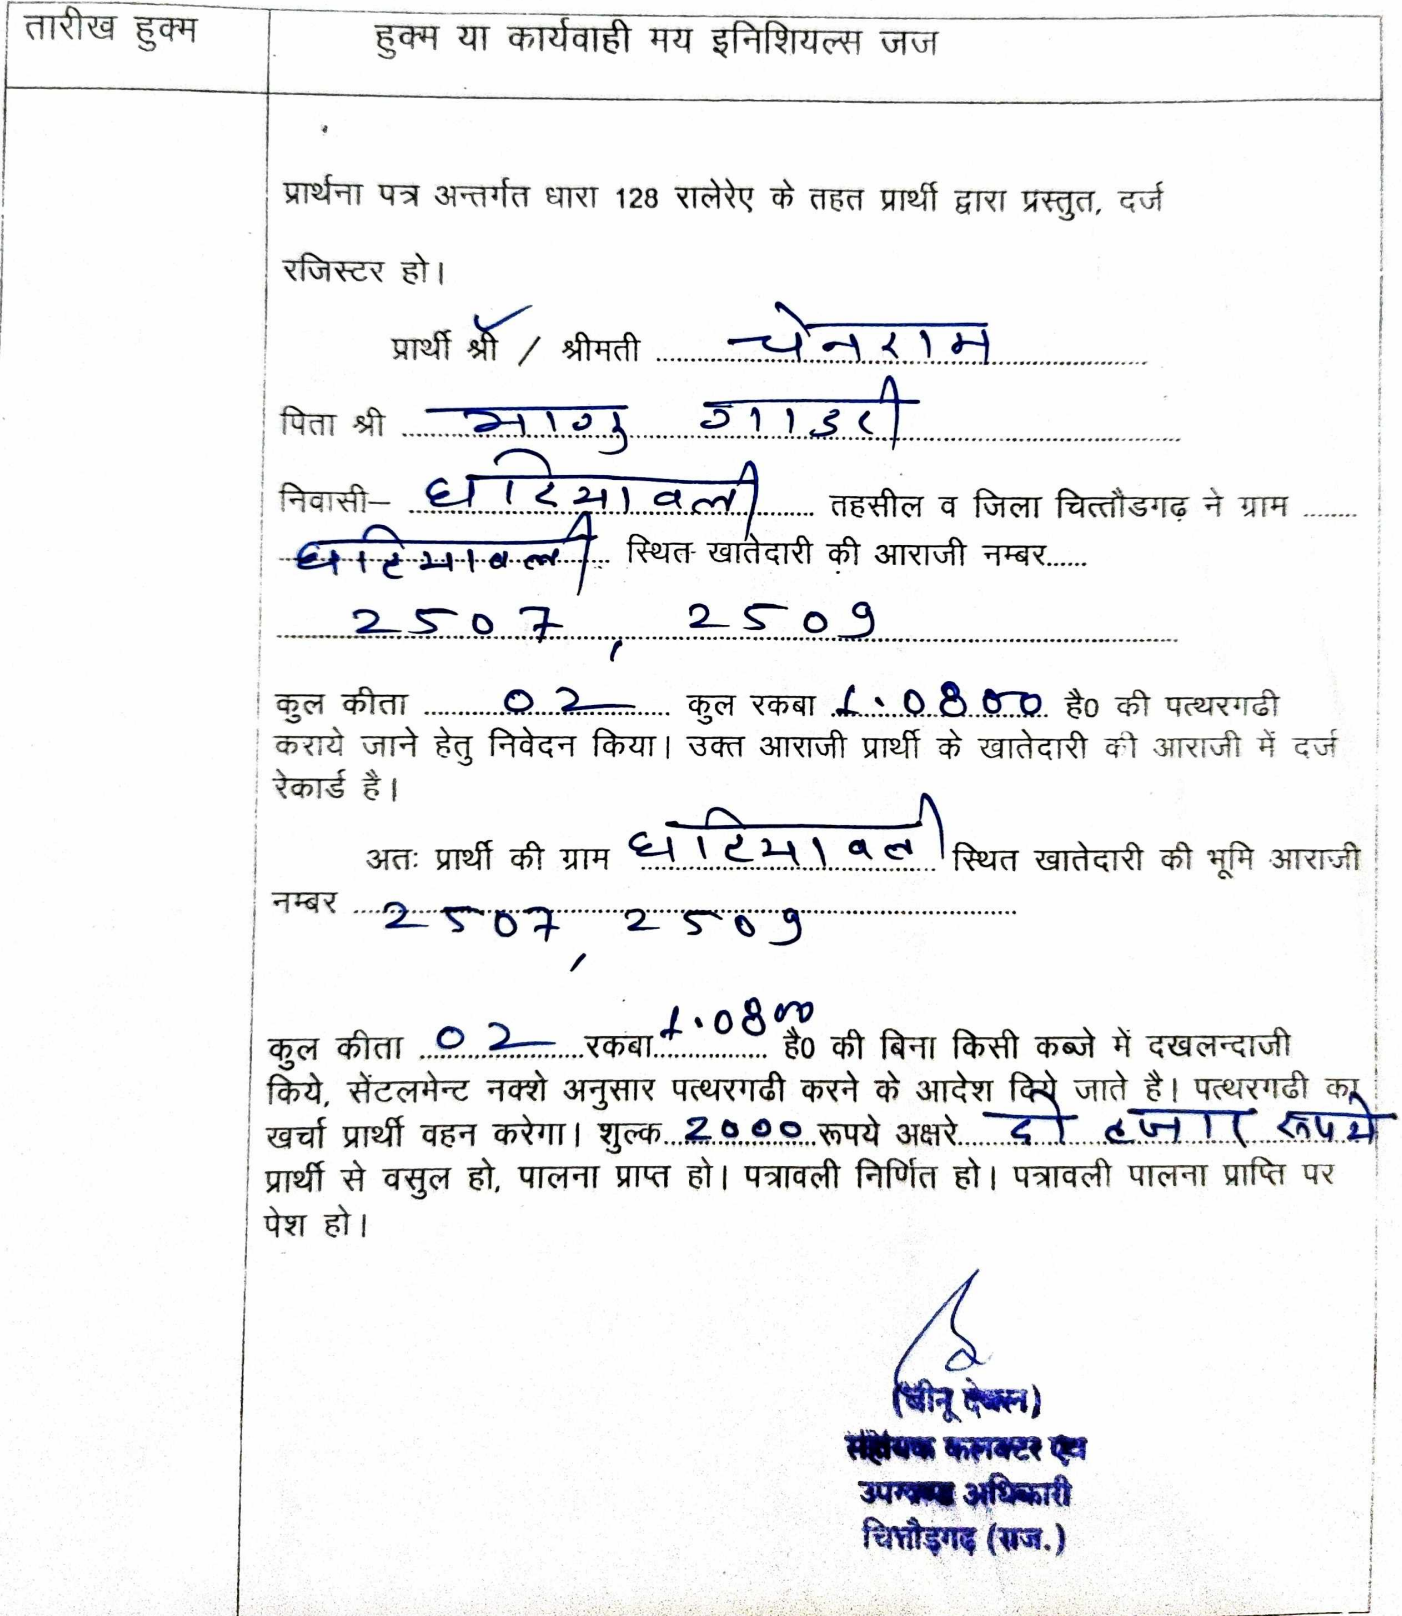 तारीख हुक्म
हुक्म या कार्यवाही मय इनिशियल्स जज
प्रार्थना पत्र अन्तर्गत धारा 128 रालेरेए के तहत प्रार्थी द्वारा प्रस्तुत, दर्ज
रजिस्टर हो।
प्रार्थी श्री / श्रीमती चेनराम
पिता श्री भागु गाडरी
निवासी– घटियावली तहसील व जिला चित्तौडगढ़ ने ग्राम ........
घटियावली स्थित खातेदारी की आराजी नम्बर......
2507, 2509
कुल कीता 02 कुल रकबा 1.0800 है0 की पत्थरगढी
कराये जाने हेतु निवेदन किया। उक्त आराजी प्रार्थी के खातेदारी की आराजी में दर्ज
रेकार्ड है।
अतः प्रार्थी की ग्राम घटियावली स्थित खातेदारी की भूमि आराजी
नम्बर 2507, 2509
कुल कीता 02 रकबा 1.0800 है0 की बिना किसी कब्जे में दखलन्दाजी
किये, सेंटलमेन्ट नक्शे अनुसार पत्थरगढी करने के आदेश दिये जाते है। पत्थरगढी का
खर्चा प्रार्थी वहन करेगा। शुल्क 2000 रूपये अक्षरे दो हजार रूपये
प्रार्थी से वसुल हो, पालना प्राप्त हो। पत्रावली निर्णित हो। पत्रावली पालना प्राप्ति पर
पेश हो।
(बीनू देवल)
सहायक कलक्टर एवं
उपखण्ड अधिकारी
चित्तौड़गढ़ (राज.)